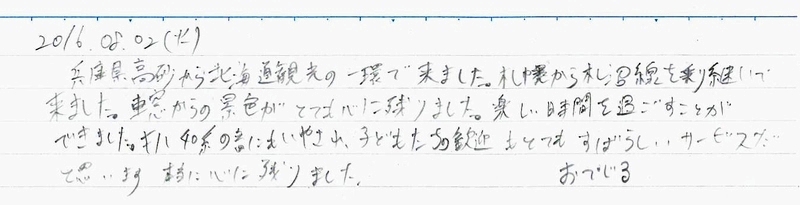 2016.08.02(火)
兵庫県高砂から北海道観光の一環で来ました。札幌から札沼線を乗り継いで
来ました。車窓からの景色がとても心に残りました。楽しい時間を過ごすことが
できました。キハ40系の音にもいやされ、子どもたちの歓迎もとてもすばらしいサービスだ
と思います 本当に心に残りました。
おでじる